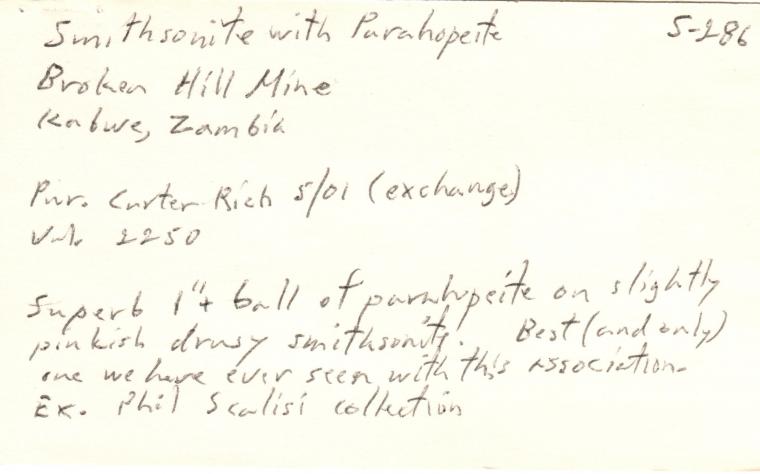 Smithsonite with Parahopeite S-286
Broken Hill Mine
Kabwe, Zambia
Pur. Carter Rich 5/01 (exchange)
Val. 2250
Superb 1"+ ball of parahopeite on slightly
pinkish drusy smithsonite. Best (and only)
one we have ever seen with this association.
Ex. Phil Scalisi collection